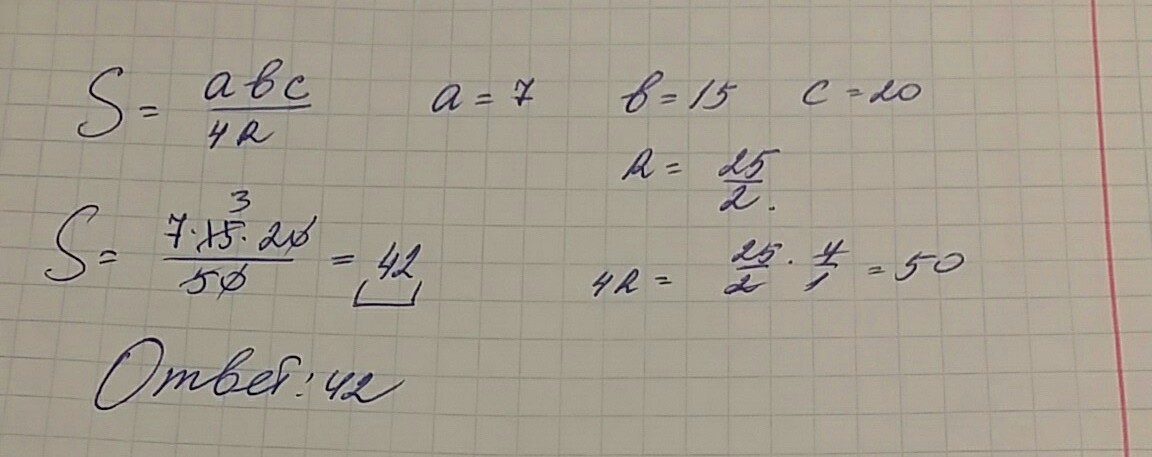 S = abc / 4R a = 7 b = 15 c = 20
R = 25/2.
3
S = 7·15·20 / 50 = 42
4R = 25/2 · 4/1 = 50
Ответ: 42